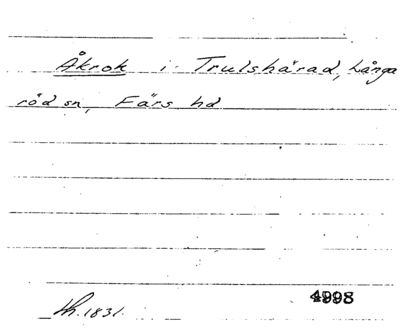 Åkrok i Trulshärad, Långa
röd sn, Färs hd
1831.
4998